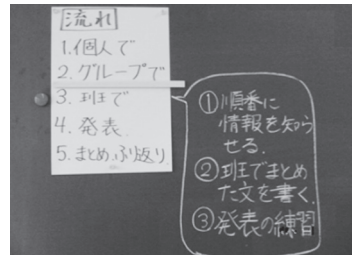 流れ
1.個人で
2.グループで
3.班で
4.発表.
5.まとめ.ふり返り
①順番に
情報を知ら
せる.
②班でまとめ
た文を書く.
③発表の練習